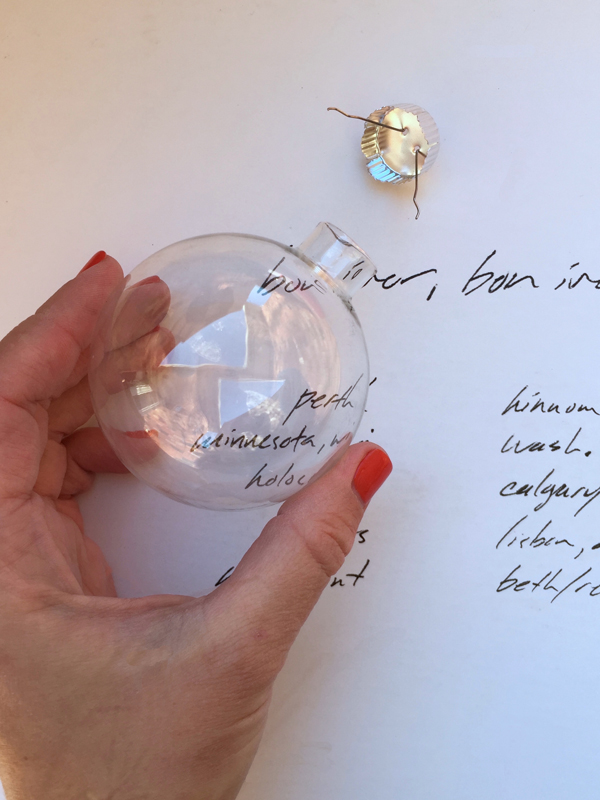 bon iver, bon ive
perth
minnesota, wi
holoc
hinnom
wash.
calgary
lisbon,
beth/